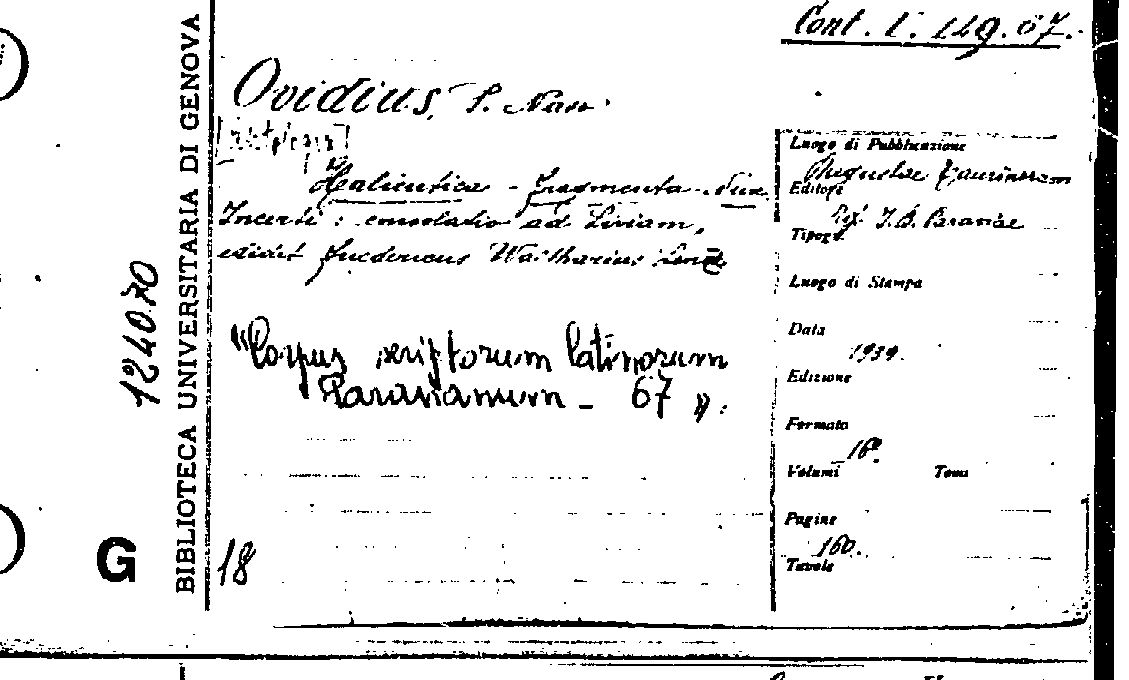 Cont. I. 119.67.
Ovidius, P. Naso
Halieutica - Fragmenta - Nux.
Incerti: consolatio ad Liviam,
edidit Federicus Waltharius Lenz
"Corpus scriptorum latinorum
Paravianum - 67".
18
124070
BIBLIOTECA UNIVERSITARIA DI GENOVA
G
Luogo di Pubblicazione
Augustae Taurinorum
Editore
I. B. Paraviae
Tipogr.
Luogo di Stampa
Data
1939.
Edizione
Formato
16º.
Volumi Tomi
Pagine
160.
Tavole